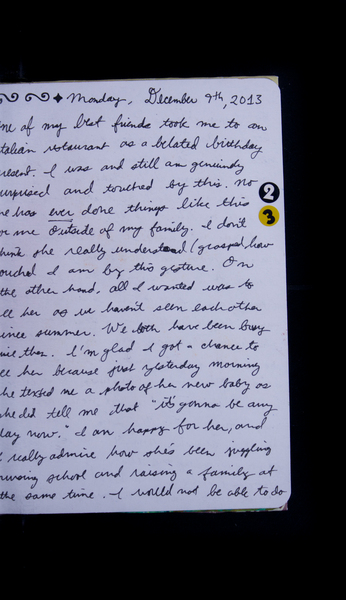 Monday, December 9th, 2013
ne of my best friends took me to an
talian restaurant as a belated birthday
resent. I was and still am genuinely
urprised and touched by this. No
ne has ever done things like this
or me outside of my family. I don't
hink she really understood (grasped) how
ouched I am by this gesture. On
the other hand, all I wanted was to
ee her as we haven't seen each other
ince summer. We both have been busy
ince then. I'm glad I got a chance to
ee her because just yesterday morning
he texted me a photo of her new baby as
she did tell me that "it's gonna be any
day now." I am happy for her, and
I really admire how she's been juggling
nursing school and raising a family at
the same time. I would not be able to do
2
3